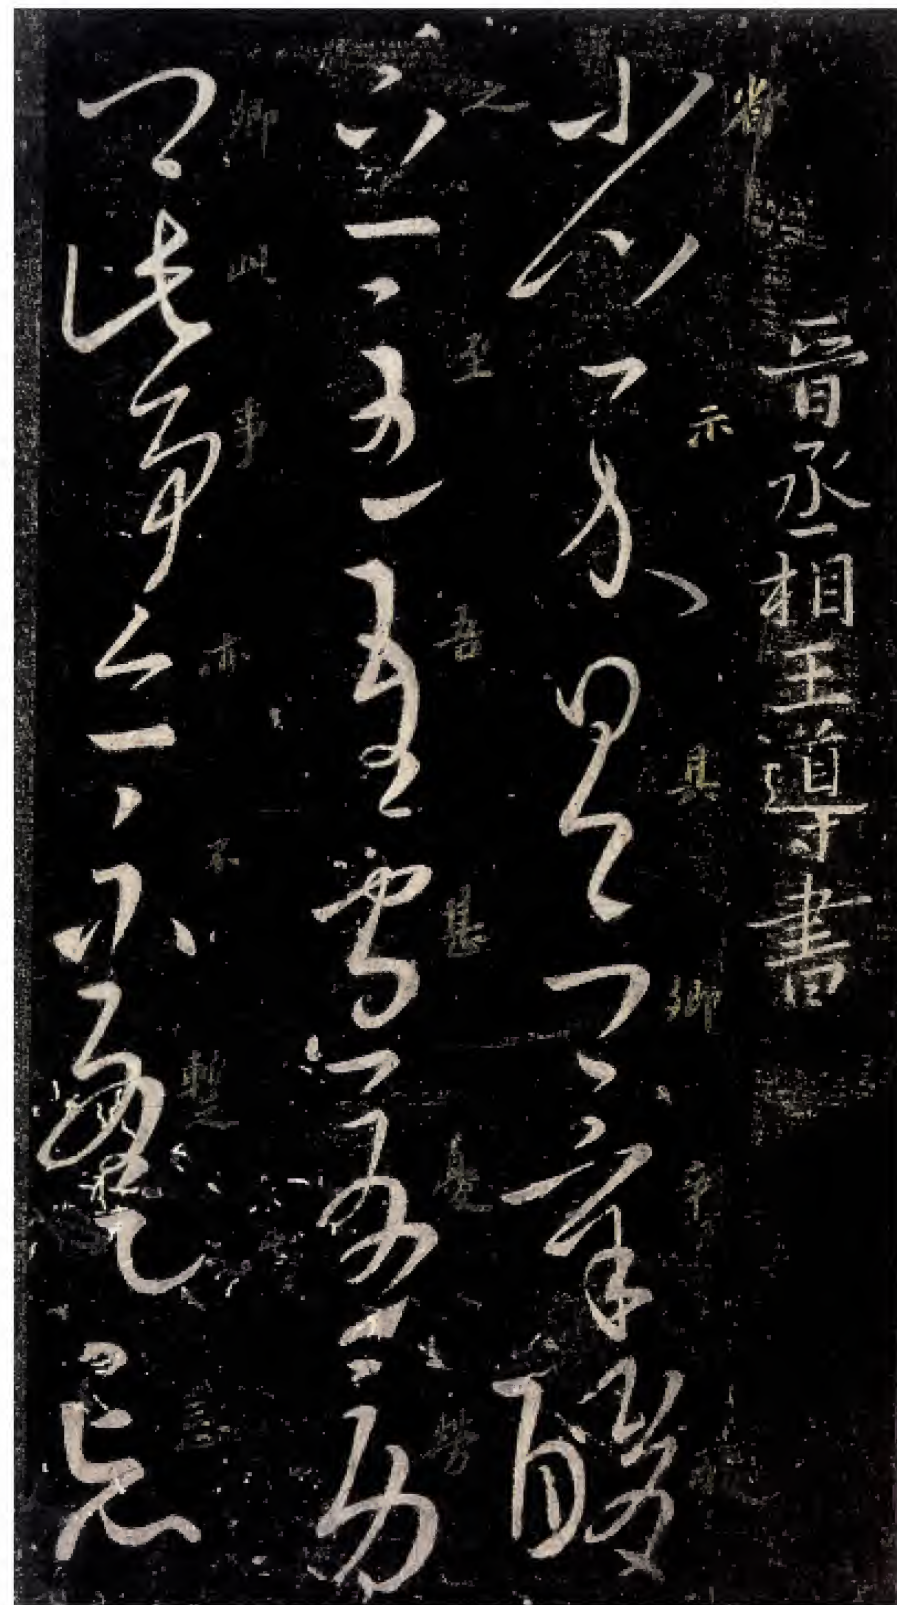 晉丞相王導書
省示具卿辛酸
之至吾甚憂勞
卿此事亦不蹔忘